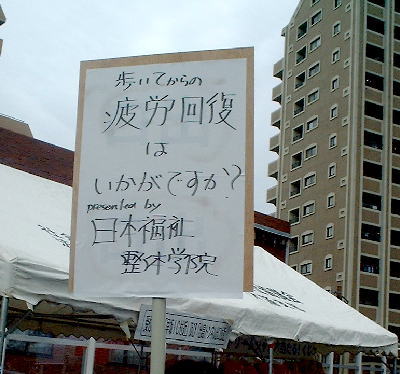 歩いてからの
疲労回復
は
いかがですか?
presented by
日本福祉
整体学院